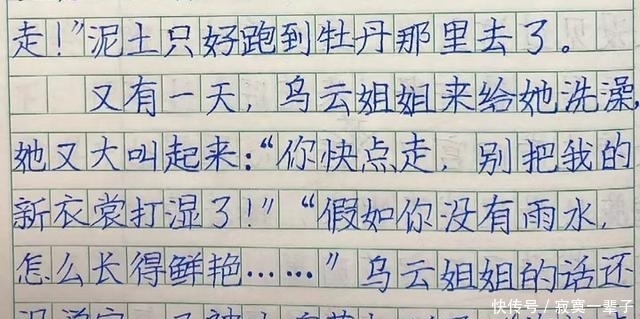 走！”泥土只好跑到牡丹那里去了。
又有一天，乌云姐姐来给她洗澡，
她又大叫起来：“你快点走，别把我的
新衣裳打湿了！”“假如你没有雨水，
怎么长得鲜艳……”乌云姐姐的话还
快传号/寂寞一辈子